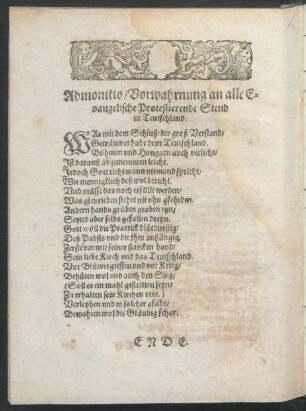 Admonitio/Vorwahrnung an alle E-
vangelische Protestierende Stend
in Teutschland.
WAs mit dem Schluß der groß Verstand/
Getrawet habe dem Teutschland.
Böhmen und Hungarn auch vielicht/
Ist darauß abzunemmen leicht.
Jedoch Gott richt wann niemand spricht/
Wie mennigklich deß wol bericht.
Und müsse das noch erfüllt werden/
Was geschrieben stehet mit ohn gfehrden.
Andern hands grüben graben eyn/
Seynd aber selbs gefallen dreyn.
Gott wöll die Practick blutdurstig/
Deß Pabsts und die ihm anhängig,
Zerstören mit seiner starcken hand/
Sein liebe Kirch und das Teutschland.
Vor Blutvergiessen und vor Krieg/
Behüten wol und auch den Sieg/
(Soll es ein mahl gestritten seyn/
Zu erhalten sein Kirchen rein.)
Verleyhen und in solcher gfahr/
Bewahren wol die Gläubig schar.
ENDE